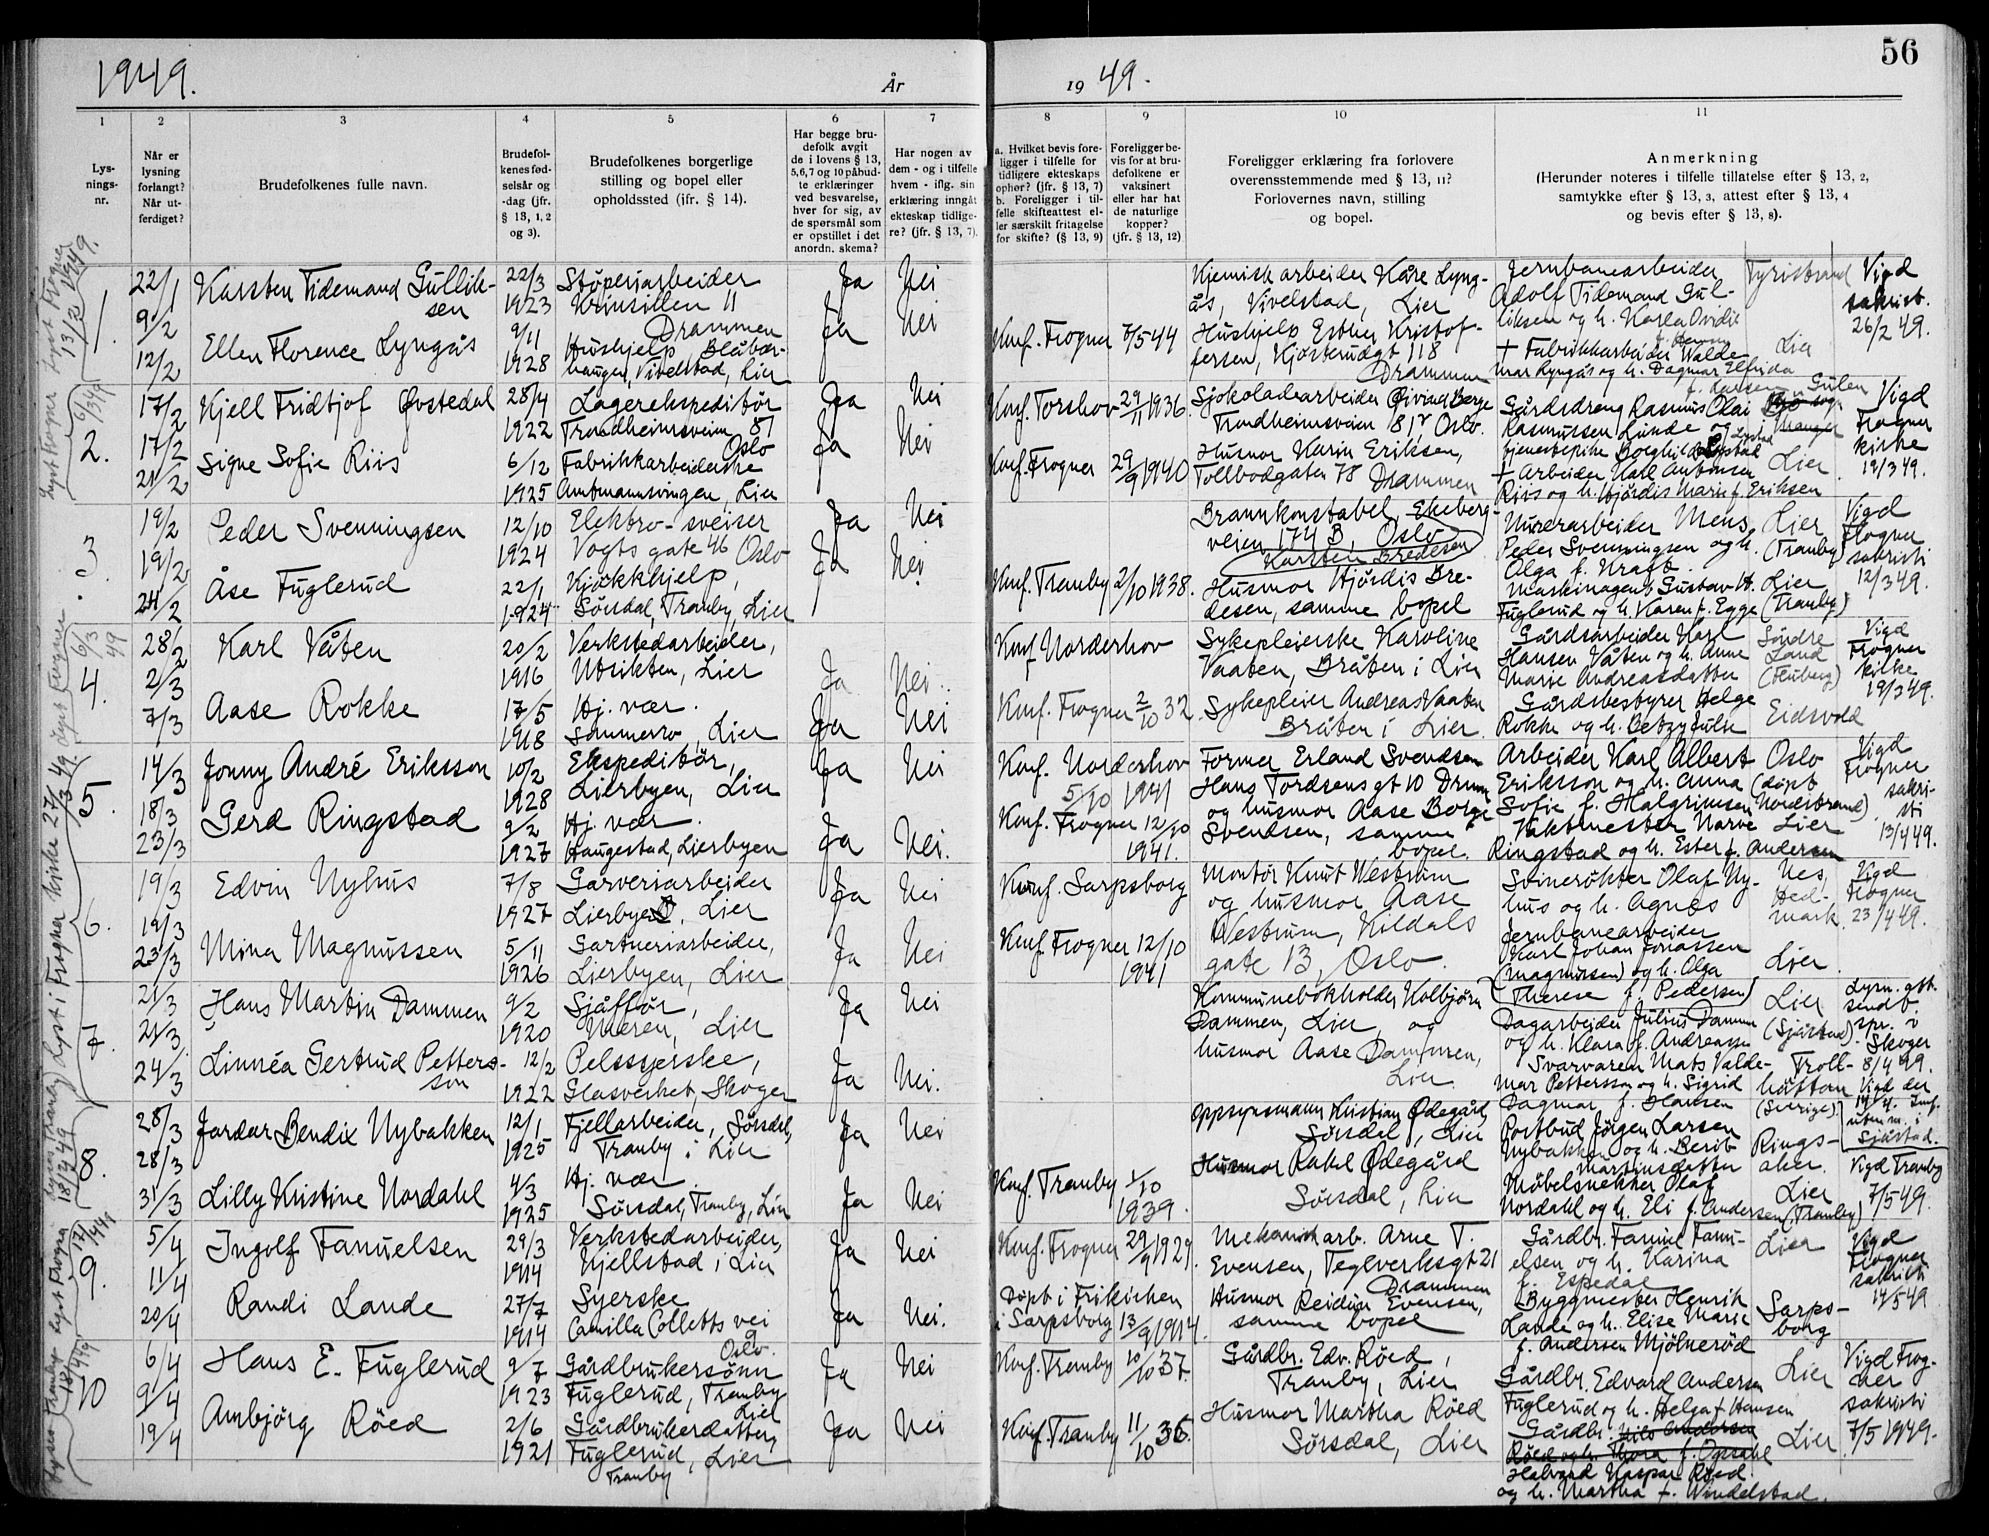 1949.
År
19 49.
56
1
2
3
4
5
6
7
8
9
10
11
Lys-
nings-
nr.
Når er
lysning
forlangt?
Når ut-
ferdiget?
Brudefolkenes fulle navn.
Brudefol-
kenes fød-
selsår og
-dag (jfr.
§ 13, 1, 2
og 3).
Brudefolkenes borgerlige
stilling og bopel eller
opholdssted (jfr. § 14).
Har begge bru-
defolk avgit
de i lovens § 13,
5,6,7 og 10 påbud-
te erklæringer
ved besvarelse,
hver for sig, av
de spørsmål som
er opstillet i det
anordn. skema?
Har nogen av
dem - og i tilfelle
hvem - iflg. sin
erklæring inngått
ekteskap tidlige-
re? (jfr. § 13, 7).
a. Hvilket bevis fore-
ligger i tilfelle for
tidligere ekteskaps
ophør? (jfr. § 13, 7)
b. Foreligger i til-
felle skifteattest el-
ler særskilt fritagelse
for skifte? (§ 13, 9)
Foreligger be-
vis for at bru-
defolkene er
vaksinert
eller har hat
de naturlige
kopper?
(jfr. § 13, 12)
Foreligger erklæring fra forlovere
overensstemmende med § 13, 11?
Forlovernes navn, stilling
og bopel.
Anmerkning
(Herunder noteres i tilfelle tillatelse efter § 13, 2,
samtykke efter § 13, 3, attest efter § 13, 4
og bevis efter § 13, 8).
Lyst Frogner
13/2 1949.
1.
22/1
9/2
12/2
Karsten Tidemand Gullik-
sen
Ellen Florence Lyngås
22/3
1923
9/11
1928
Støperiarbeider
11
Drammen
Hushjelp, Blåbær-
haugen, Vivelstad, Lier
Ja
Ja
Nei
Nei
Konf. Frogner 7/5 44
Kjemisk arbeider Kåre Lyng-
ås, Vivelstad, Lier
Hushjelp Esther Kristof-
fersen, Kjøsterudgt 118
Drammen
Jernbanearbeider
Adolf Tidemand Gul-
liksen og h. Karla
+ Fabrikkarbeider Walde-
mar Lyngås og h. Dagmar Elfrida
f. Larsen
Tyristrand
Lier
Vigd
sakrist.
26/2 49.
Lyst Frogner 6/3 49
2.
17/2
17/2
21/2
Kjell Fridtjof Øvstedal
Signe Sofie Riis
28/4
1922
6/12
1925
Lagerekspeditør
Trondheimsveien 81
Oslo
Fabrikkarbeiderske
Amtmannsvingen, Lier
Ja
Ja
Nei
Nei
Konf. Torshov 29/11 1936.
Konf. Frogner 29/9 1940
Sjokoladearbeider Øivind Berge
Trondheimsveien 81 Oslo.
Husmor Karin Eriksen,
Tollbodgaten 78 Drammen
Gårdsdreng Rasmus Olai
Rasmussen Lunde og
tjenestepike Borghild
+ Arbeider Karl Antonsen
Riis og h. Hjørdis Marie f. Eriksen
Gulen
sogn
Lier
Vigd
Frogner
kirke
19/3 49.
3.
19/2
19/2
24/2
Peder Svenningsen
Åse Fuglerud
12/10
1924
22/1
1924
Elektro-sveiser
Vogts gate 46 Oslo
Kjøkkhjelp,
Sørsdal, Tranby, Lier
Ja
Ja
Nei
Nei
Konf. Tranby 2/10 1938.
Brannkonstabel, Ekeberg-
veien 174 B, Oslo
Karsten Bredesen
Husmor Hjørdis Bre-
desen, samme bopel
Murerarbeider Mons
Peder Svenningsen og h.
Olga f.
Maskinagent Gustav H.
Fuglerud og h. Karen f. Egge
Lier
(Tranby)
Lier
(Tranby)
Vigd
Frogner
sakristi
12/3 49.
4.
28/2
2/3
7/3
Karl Våten
Aase Rokke
20/2
1916
17/5
1918
Verkstedarbeider,
Utsikten, Lier
Hj. vær.
Sommerro, Lier
Ja
Ja
Nei
Nei
Konf Norderhov
Konf. Frogner 2/10 32.
Sykepleierske Karoline
Vaaten, Bråten i Lier
Sykepleier Andreas Vaaten
Bråten i Lier
Gårdsarbeider Karl
Hansen Våten og h. Anne
Marie Andreasdatter
Gårdsbestyrer Helge
Rokke og h. Betzy Julie
Søndre
Land
(Fluberg)
Eidsvold
Vigd
Frogner
kirke
19/3 49.
5.
14/3
18/3
23/3
Jonny André Eriksson
Gerd Ringstad
10/2
1928
9/2
1927
Ekspeditør,
Lierbyen, Lier
Hj. vær.
Haugestad, Lierbyen
Ja
Ja
Nei
Nei.
Konf. Norderhov
5/10 1941
Konf. Frogner 12/10
1941.
Former Erland Svendsen
Hans Tordsens gt 10 Drmn
og husmor Aase Borge
Svendsen, samme
bopel.
Arbeider Karl Albert
Eriksson og h. Anna
Sofie f. Halgrimsen
Vaktmester Narve
Ringstad og h. Ester f. Andersen
Oslo
(døpt
Nordstrand)
Lier
Vigd
Frogner
sakri-
sti
13/4 49.
6.
19/3
19/3
23/3
Edvin Nyhus
Mina Magnussen
7/8
1927
5/11
1926
Garveriarbeider
Lierbyen, Lier
Gartneriarbeider,
Lierbyen, Lier
Ja
Ja
Nei
Nei
Konf. Sarpsborg
Konf. Frogner 12/10
1941
Montør Knut Westrum
og husmor Aase
Westrum, Kildals
gate 13, Oslo.
Svinerøkter Olaf Ny-
hus og h. Agnes
Jernbanearbeider
Karl Johan Jonassen
(Magnussen) og h. Olga
Therese f. Pedersen)
Nes,
Hed-
mark.
Lier
Vigd
Frogner
23/4 49.
7.
21/3
21/3
24/3
Hans Martin Dammen
Linnéa Gertrud Petters-
son
9/2
1920
12/2
1922
Sjåfør,
Meren, Lier
Pelssyerske,
Glasverket, Skoger
Ja
Ja
Nei
Nei.
Kommunebokholder Kolbjørn
Dammen, Lier, og
husmor Aase Dammen,
Lier.
Dagarbeider Julius Dammen
og h. Klara f. Andreassen
Svarvaren Mats Valde-
mar Pettersson og h. Sigrid
Dagmar f. Hansen
Lier
(Sjåstad).
Troll-
hättan
(Sverige).
Lysn. att.
sendt
spr. i
Skoger
8/4 49.
Vigd der
Sjåstad.
8.
28/3
28/3
31/3
Jardar Bendix Nybakken
Lilly Kristine Nordahl
12/1
1925
4/3
1925
Fjellarbeider, Sørsdal,
Tranby i Lier
Hj. vær
Sørsdal, Tranby, Lier
Ja
Ja
Nei
Nei
Konf. Tranby 1/10
1939.
Oppsynsmann Kristian Ødegård,
Sørsdal, Lier
Husmor Rakel Ødegård
Sørsdal, Lier
Postbud Jørgen Larsen
Nybakken og h. Berit
Martinsdatter
Møbelsnekker Olaf
Nordahl og h. Eli f. Andersen
Rings-
aker.
Lier
(Tranby)
Vigd Tranby
7/5 49.
9.
5/4
11/4
20/4
Ingolf Fanuelsen
Randi Lande
29/3
1914
27/7
1914
Verkstedarbeider,
Kjellstad i Lier
Syerske
Camilla Colletts vei
9
Oslo.
Ja
Ja
Nei
Nei.
Konf. Frogner 29/9 1929.
Døpt i Frikirken
i Sarpsborg 13/9 1914.
Mekanisk arb. Arne T.
Evensen, Teglverksgt 21
Drammen
Husmor Reidun Evensen,
samme bopel
Gårdbr. Fanuel Fanu-
elsen og h. Karina
f. Espedal
Byggmester Henrik
Lande og h. Elise Marie
f. Andersen Mjølnerød
Lier
Sarps-
borg
Vigd
Frogner
sakristi
14/5 49
10
6/4
9/4
19/4
Hans E. Fuglerud
Ambjørg Røed
9/7
1923
2/6
1921
Gårdbrukersønn
Fuglerud, Tranby
Lier
Gårdbrukerdatter,
Fuglerud, Lier
Tranby
Ja
Ja
Nei
Nei
Konf. Tranby 10/10 37.
Konf. Tranby 11/10 36.
Gårdbr. Edv. Røed,
Tranby, Lier
Husmor Martha Røed
Sørsdal, Lier
Gårdbr. Edvard Andersen
Fuglerud og h. Helga f. Hansen
Gårdbr. Nils Andersen
Røed og h. Thora f. Opsahl
Halvard Kaspar Røed
og h. Martha f. Windelstad.
Lier
Lier
Vigd Frog-
ner
sakristi
7/5 1949.